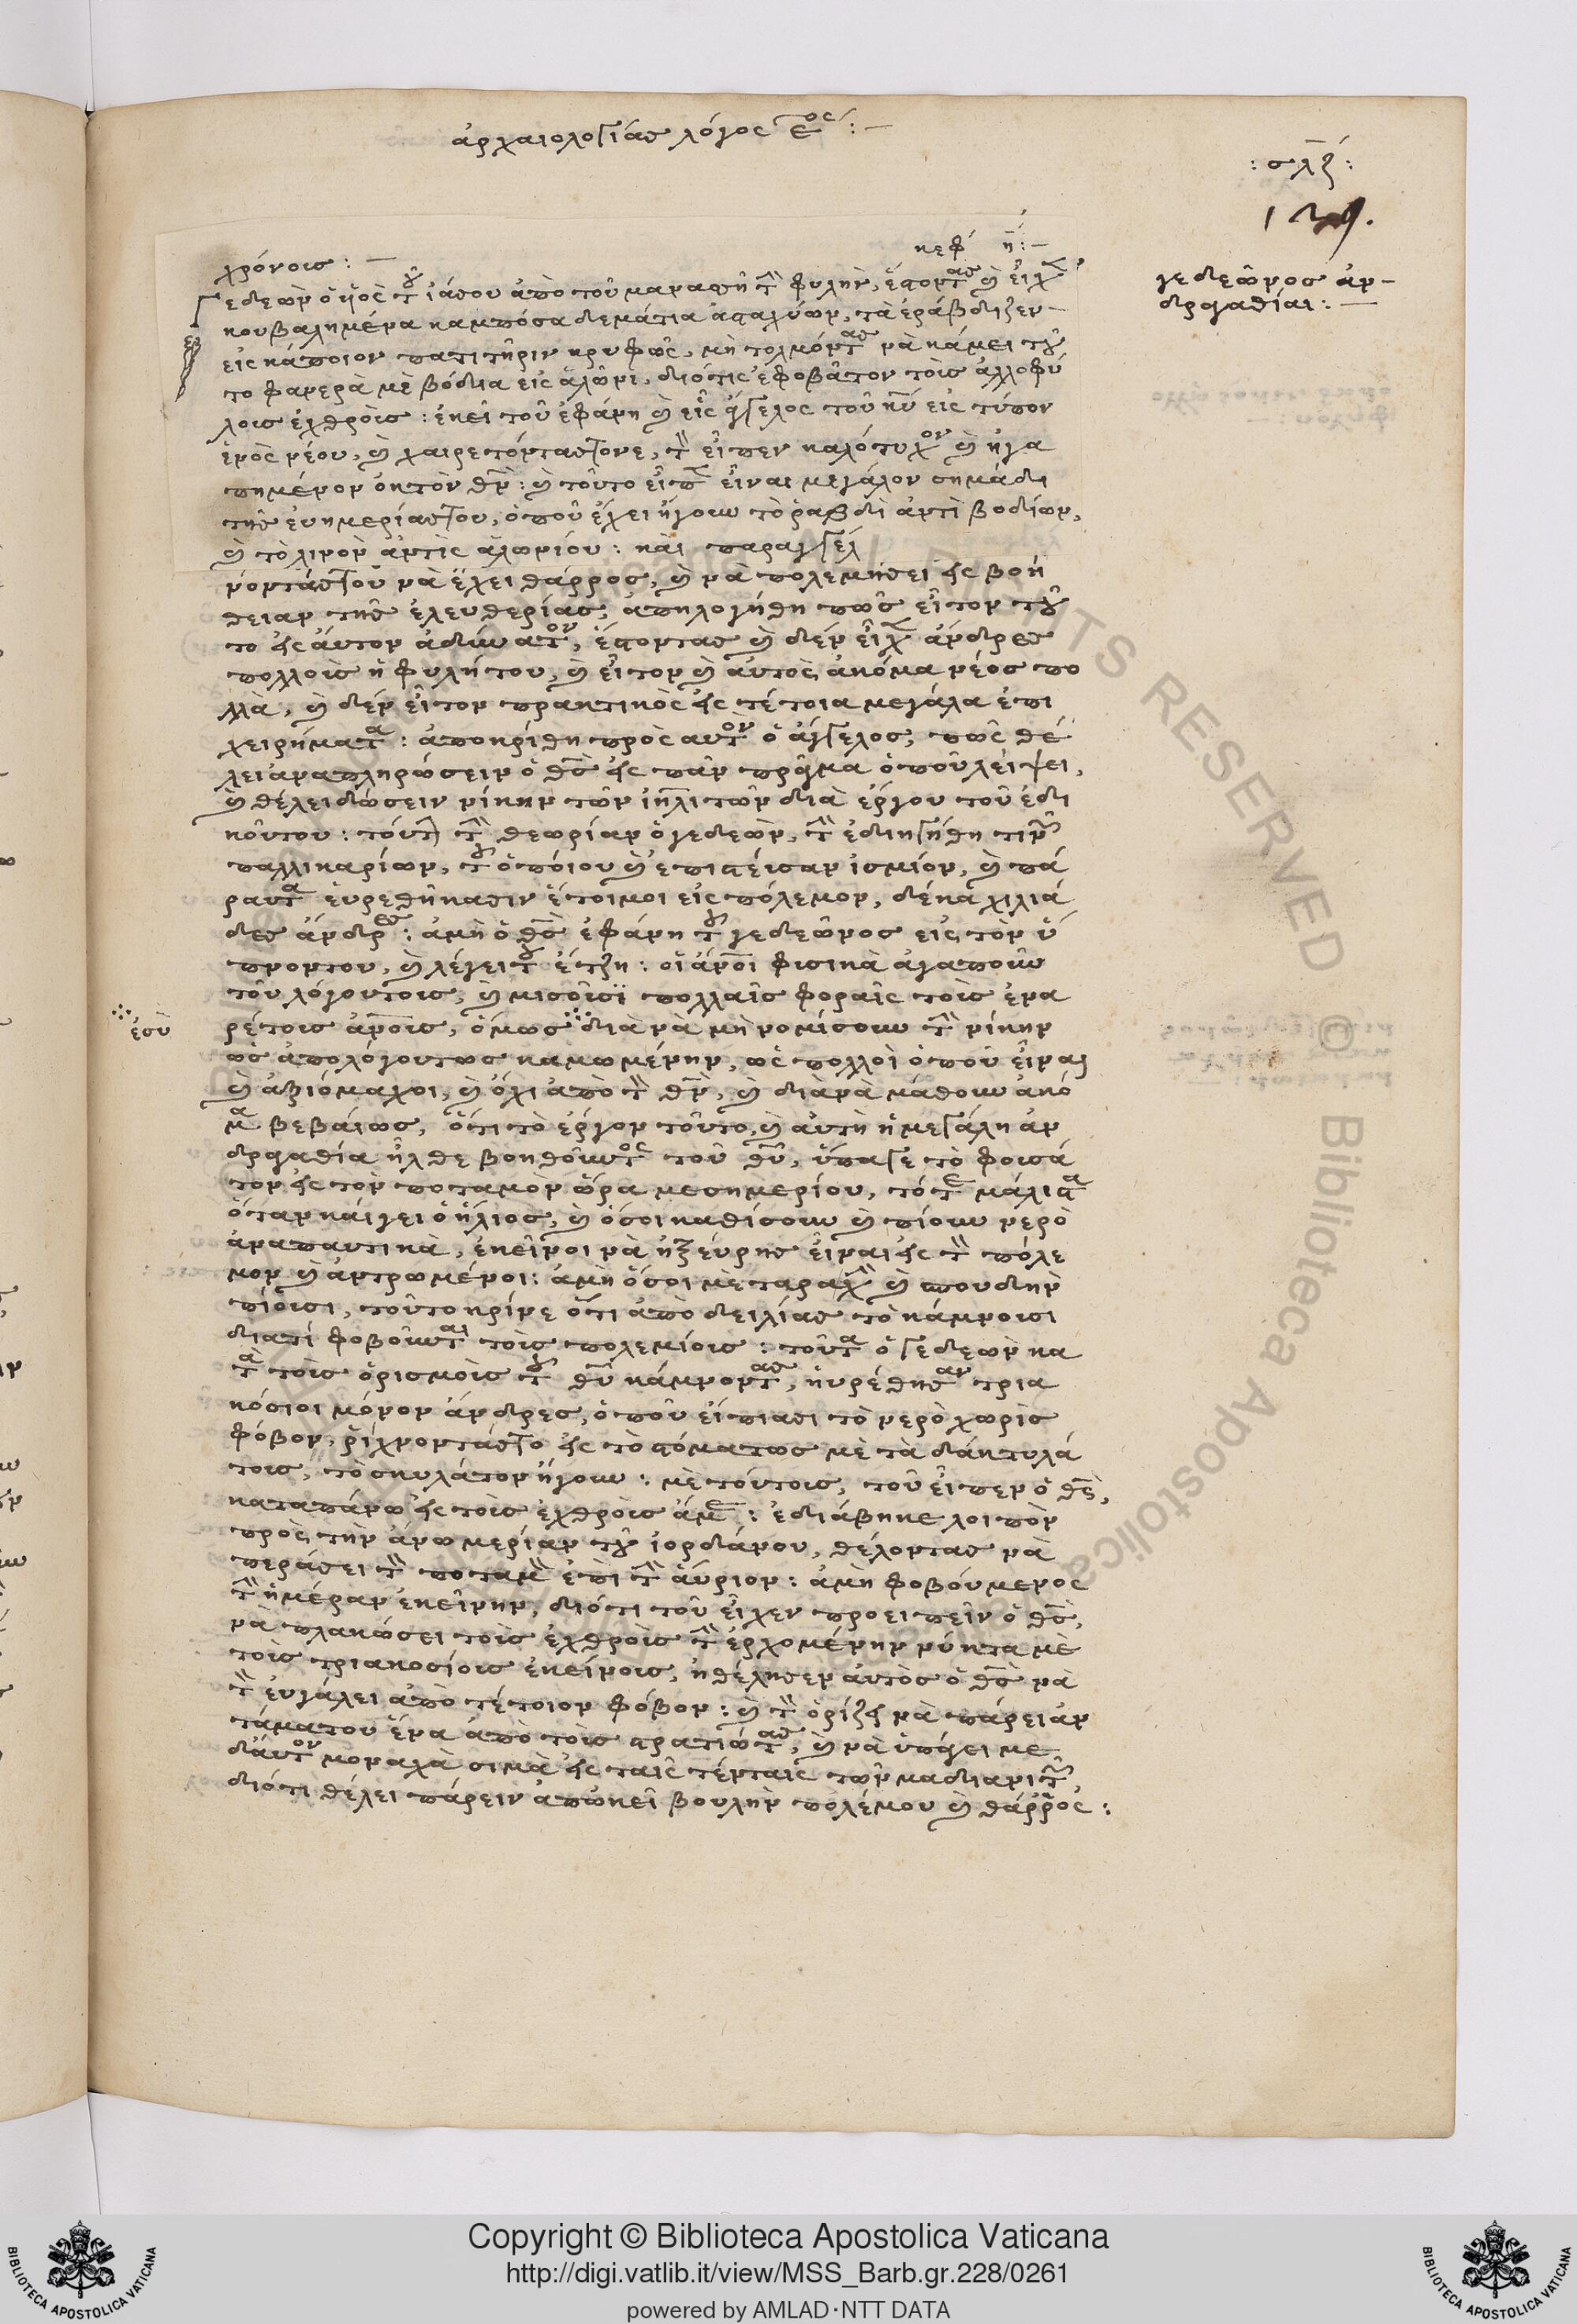 ἀρχαιολογίας λόγος ε^ος : —
: σλζ :
129.
κεφ η : —
χρόνοις : —
γεδεῶνος ἀν-
δραγαθίαι : —
Γεδεὼν ὁ ὑιὸς τοῦ ἰάσου ἀπὸ τοῦ μανασῆ τὴν φυλὴν, ἔστοντας κ εἶχε
κουβαλημένα καμπόσα δεμάτια ἀσταχύων, τὰ ἐράβδιζεν —
εἰς κάποιον πατιτῆριν κρυφῶς, μὴ τολμόντας νὰ κάμει τοῦ
το φανερὰ μὲ βόδια εἰς ἁλῶνι, διότις ἐφοβᾶτον τοὶς ἀλλοφύ
λοις ἐχθροὶς : ἐκεῖ τοῦ ἐφάνη κ εἷς ἄγγελος τοῦ κυ εἰς τύπον
ἑνὸς νέου, κ χαιρετόντας τονε, τὸν εἶπεν καλότυχον κ ἠγα
πημένον ὀκ τὸν θν : κ τοῦτο εἶπε εἶναι μεγάλον σημάδι
τῆς ἐυημερίας του, ὁποῦ ἔχει ἤγουν τὸ ῥαβδὶ ἀντὶ βοδίων,
κ τὸ λινὸν ἀντὶς ἁλωνίου : καὶ παραγγελ
νοντάς του νὰ ἔχει θάρρος, κ νὰ πολεμήσει εἰς βοή
θειαν τῆς ἐλευθερίας, ἀπηλογήθη πῶς εἶτον τοῦ
το εἰς ἀυτον ἀδύνατον, ἔστοντας κ δὲν εἶχε ἄνδρες
πολλοὶς ἡ φυλή του, κ εἶτον κ ἀυτὸς ἀκόμα νέος πο
λλὰ, κ δὲν εἶτον πρακτικὸς εἰς τέτοια μεγάλα ἐπι
χειρήματα : ἀποκρίθη πρὸς αυτὸν ὁ ἄγγελος, πῶς θέ
λει αναπληρώσειν ὁ θς εἰς πᾶν πρᾶγμα ὁποῦ λείψει,
κ θέλει δώσειν νίκην τῶν ἰηλιτῶν διὰ ἔργου τοῦ ἐδι
κοῦ του : τούτην τὴν θεωρίαν ὁ γεδεὼν, τὴν ἐδιηγήθη τινῶν
παλλικαρίων, τοῦ ὁποίου κ ἐπιστέυσαν ἰσμιόν, κ πά
ραυτα ἑυρεθήκασιν ἕτοιμοι εἰς πόλεμον, δέκα χιλιά
δες ἄνδρες : ἀμὴ ὁ θς ἐφάνη τοῦ γεδεῶνος εἰς τὸν ὕ
πνον του, κ λέγει του ἔτζη : οἱ ἄνοι φισικὰ ἀγαποῦν
τοῦ λόγου τοις, κ μισοῦσι πολλαῖς φοραῖς τοὶς ἐνα
ρέτοις ἀνοις, ὅμως διὰ νὰ μὴ νομίσουν τὴν νίκην
ἐσὺ
ὡς ἀπολόγου τως καμωμένην, ὡς πολλοὶ ὁποῦ εἶναι
κ ἀξιόμαχοι, κ ὄχι ἀπὸ τὸν θν, κ διὰ νὰ μάθουν ἀκό
μα βεβαίως, ὅτι τὸ ἔργον τοῦτο, κ ἀυτὴ ἡ μεγάλη ἀν
δραγαθία ἦλθε βοηθοῦντος τοῦ θυ, ὕπαγε τὸ φοισά
τον εἰς τον ποταμὸν ὥρα μεσημερίου, τότε μάλιστα
ὅταν κάιγει ὁ ἥλιος, κ ὅσοι καθίσουν κ πίουν νερὸ
ἀναπαυτικὰ, ἐκεῖνοι νὰ ἠξέυρης εἶναι εἰς τὸν πόλε
μον κ ἀντρωμένοι : ἀμὴ ὅσοι μὲ ταραχὴν κ σπουδὴν
πίουσι, τοῦτο κρίνε ὅτι ἀπὸ δειλίας τὸ κάμνοισι
διατί φοβοῦνται τοὶς πολεμίοις : τοῦτα ὁ γεδεὼν κα
τὰ τοὶς ὁρισμοὶς τοῦ θυ κάμνοντας, ηὑρέθησαν τρια
κόσιοι μόνον ἄνδρες, ὁποῦ ἐίπιασι τὸ νερὸ χωρὶς
φόβον, ρίχνοντάς το εἰς τὸ στόμα τως μὲ τὰ δάκτυλά
τοις, τὸ σκυλάτον ἤγουν : μὲ τούτοις, τοῦ εἶπεν ὁ θς,
καταπάνω εἰς τοὶς ἐχθροὶς ἄμε : ἐδιάβηκε λοιπὸν
πρὸς τὴν ἄνω μερίαν τοῦ ἰορδάνου, θέλοντας νὰ
περάσει τὸν ποταμὸν ἐπὶ τὴν ἄυριον : ἀμὴ φοβούμενος
τὴν ἡμέραν ἐκεῖνην, διότι τοῦ εἶχεν προειπεῖν ὁ θς,
νὰ πλακώσει τοὶς ἐχθροὶς τὴν ἐρχομένην νύκτα μὲ
τοὶς τριακοσίοις ἐκείνοις, ἠθέλησεν ἀυτὸς ὁ θς νὰ
τὸν ἐυγάλει ἀπὸ τέτοιον φόβον : κ τὸν ὁρίζει νὰ πάρει ἀν
τάμα του ἕνα ἀπὸ τοὶς στρατιώτας, κ νὰ ὑπάγει με
δάυτον μοναχὰ σιμὰ εἰς ταῖς τένταις τῶν μαδιανιτῶν,
διότι θέλει πάρειν ἀπῶκεῖ βουλὴν πολέμου κ θάρρος :
Copyright © Biblioteca Apostolica Vaticana
http://digi.vatlib.it/view/MSS_Barb.gr.228/0261
powered by AMLAD·NTT DATA